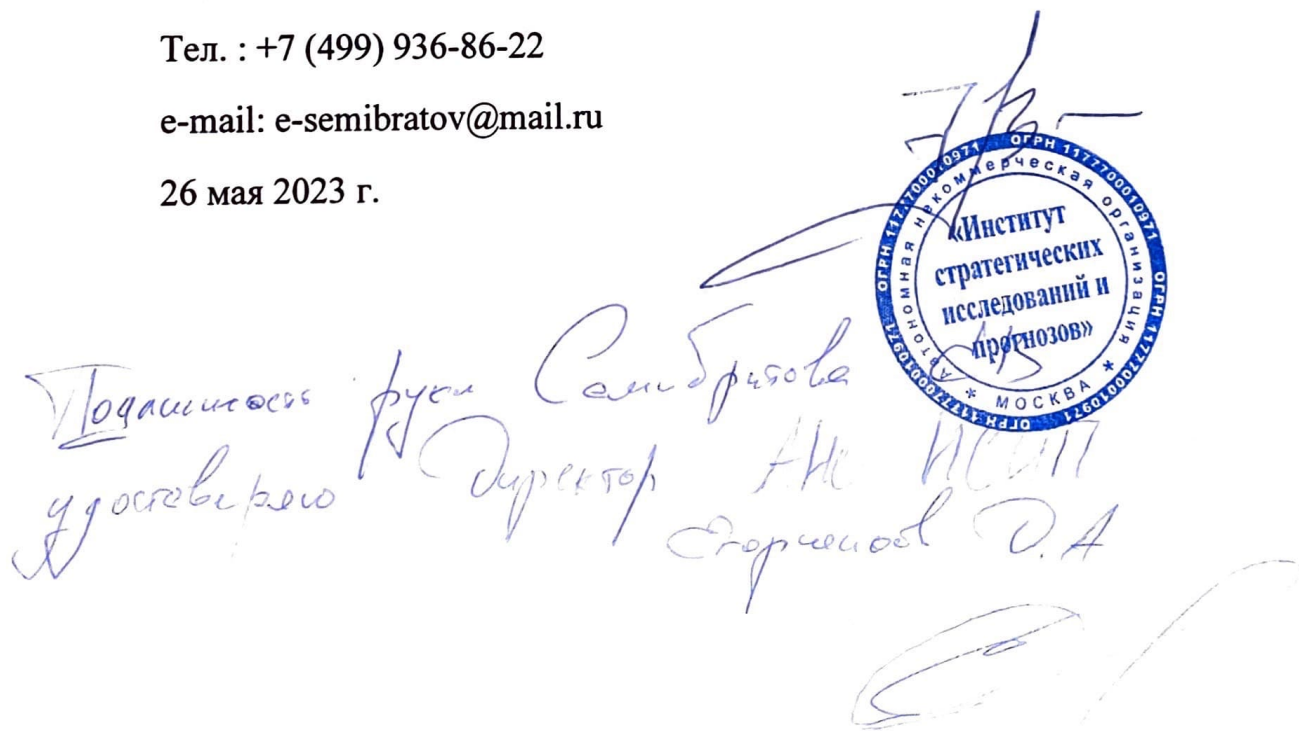 Тел. : +7 (499) 936-86-22
e-mail: e-semibratov@mail.ru
26 мая 2023 г.
ОГРН 1177700010971 ОГРН 1177700010971 ОГРН 1177700010971 ОГРН 1177700010971
Автономная некоммерческая организация
* МОСКВА *
«Институт
стратегических
исследований и
прогнозов»
Подлинность руки Семибратова
удостоверяю Директор АНО ИСИП
Егорченков Д.А